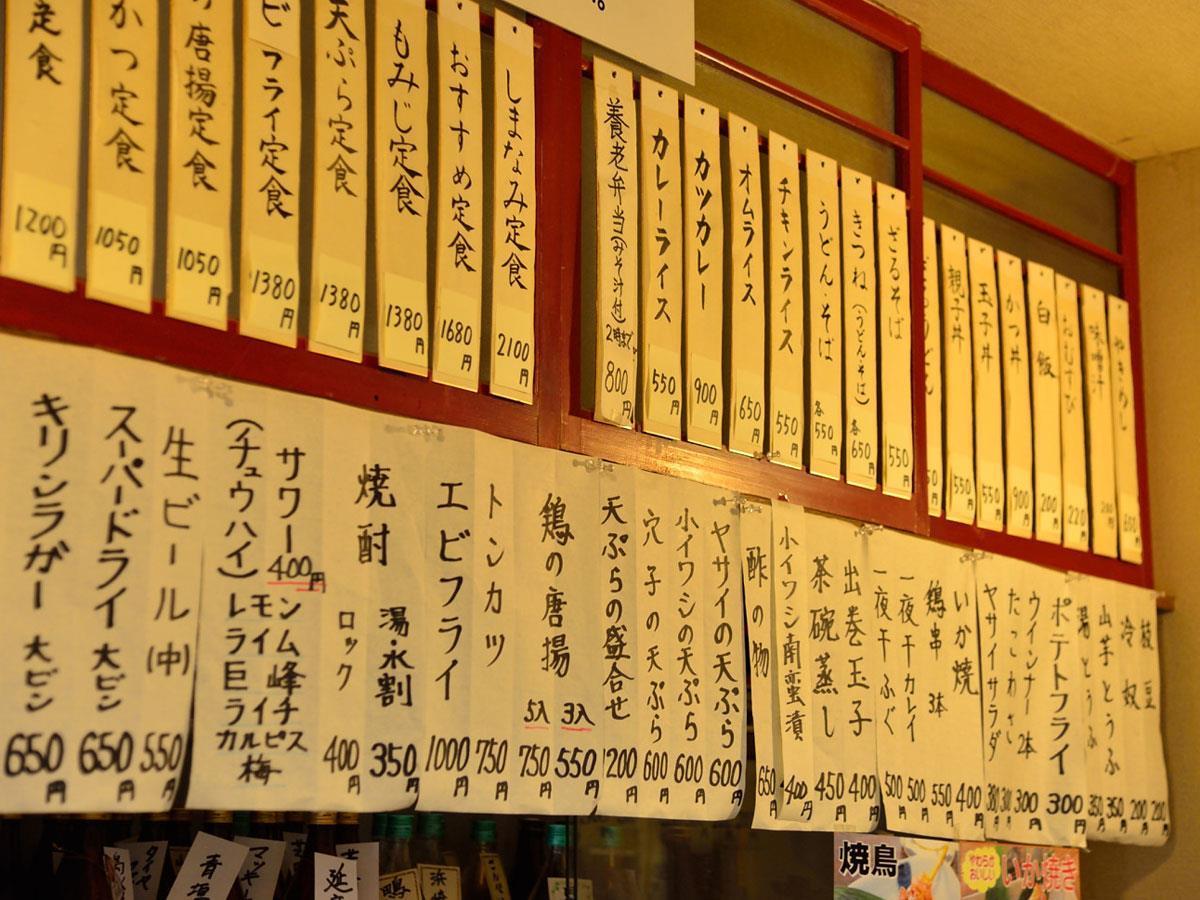 しまなみ定食 2100円
おすすめ定食 1680円
もみじ定食 1380円
天ぷら定食 1380円
ビフライ定食 1380円
唐揚定食 1050円
かつ定食 1050円
定食 1200円
やきめし 650円
味噌汁 200円
おむすび 220円
白飯 200円
かつ丼 900円
玉子丼 550円
親子丼 550円
ざるそば 550円
きつね(うどん・そば) 各650円
うどん・そば 各550円
チキンライス 550円
オムライス 650円
カツカレー 900円
カレーライス 550円
養老弁当(みそ汁付) 2時まで 800円
枝豆 200円
冷奴 200円
山芋とうふ 350円
湯とうふ 350円
ポテトフライ 300円
ウインナー 2本 300円
たこわさ
ヤサイサラダ
いか焼 400円
鶏串 3本 550円
一夜干カレイ 500円
一夜干ふぐ 500円
出巻玉子 400円
茶碗蒸し 450円
小イワシ南蛮漬 400円
酢の物 650円
ヤサイの天ぷら 600円
小イワシの天ぷら 600円
穴子の天ぷら 600円
天ぷらの盛合せ 1200円
鶏の唐揚 3入 550円
5入 750円
トンカツ 750円
エビフライ 1000円
焼酎
湯・水割 350円
ロック 400円
サワー 400円
(チュウハイ)
レモン
ライム
巨峰
ライチ
カルピス
梅
生ビール(中) 550円
スーパードライ 大ビン 650円
キリンラガー 大ビン 650円
焼鳥
いか焼き